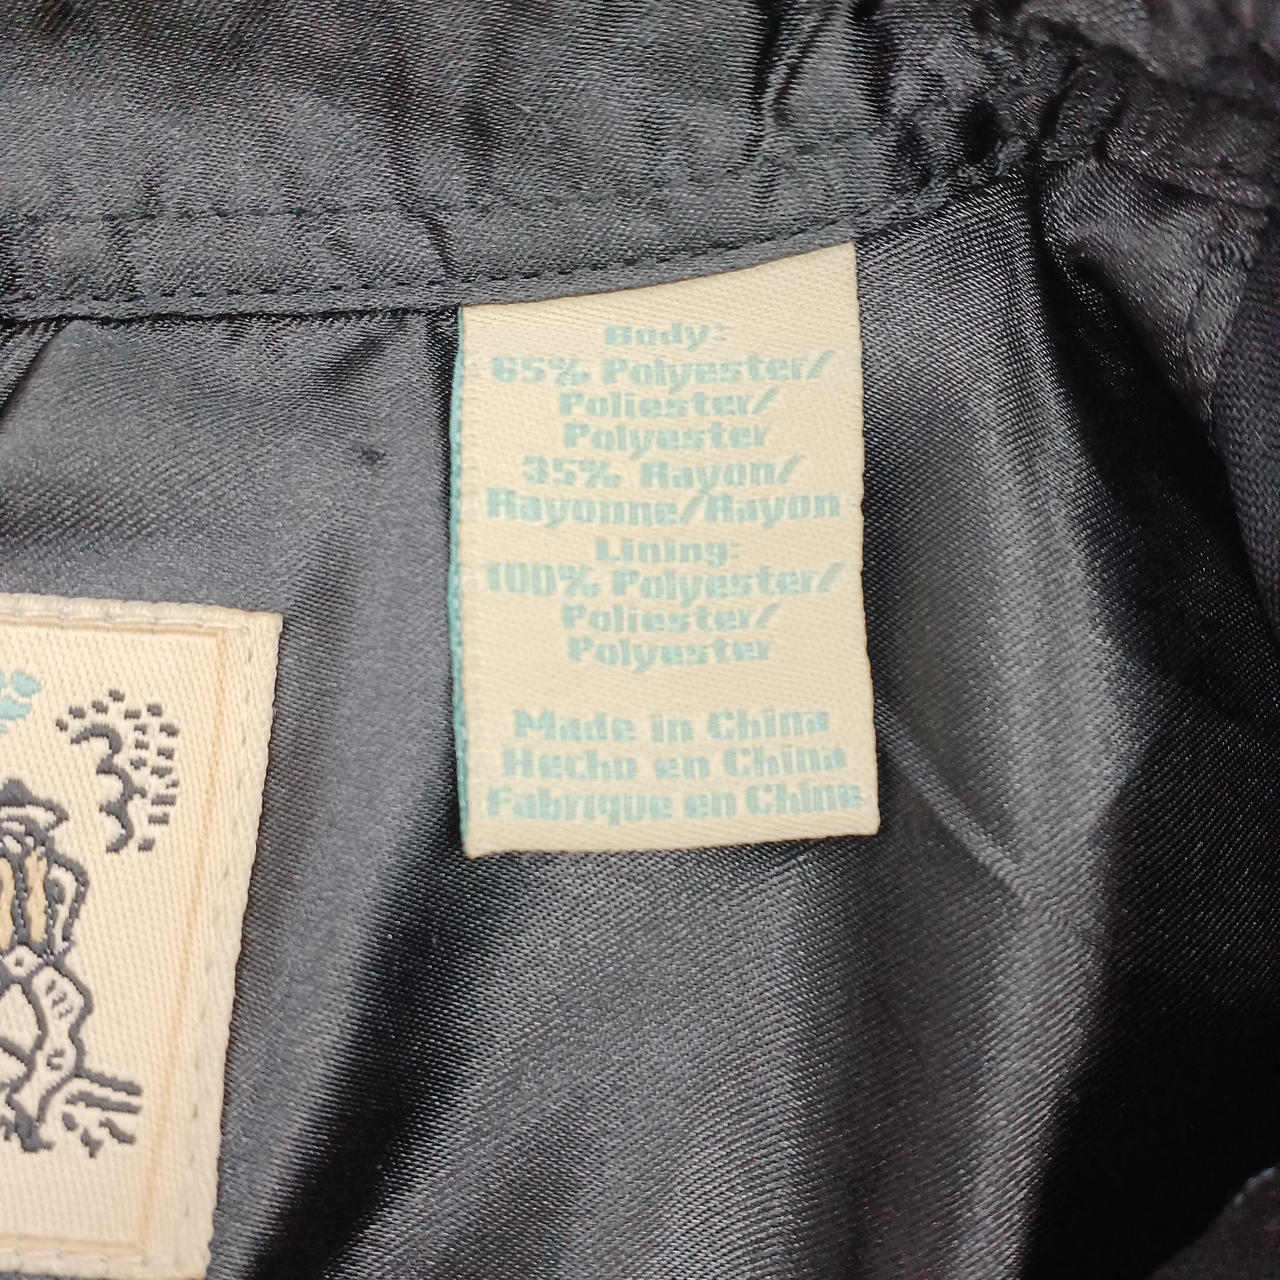 Body:
65% Polyester/
Poliester/
Polyester
35% Rayon/
Rayonne/Rayon
Lining:
100% Polyester/
Poliester/
Polyester
Made in China
Hecho en China
Fabrique en Chine